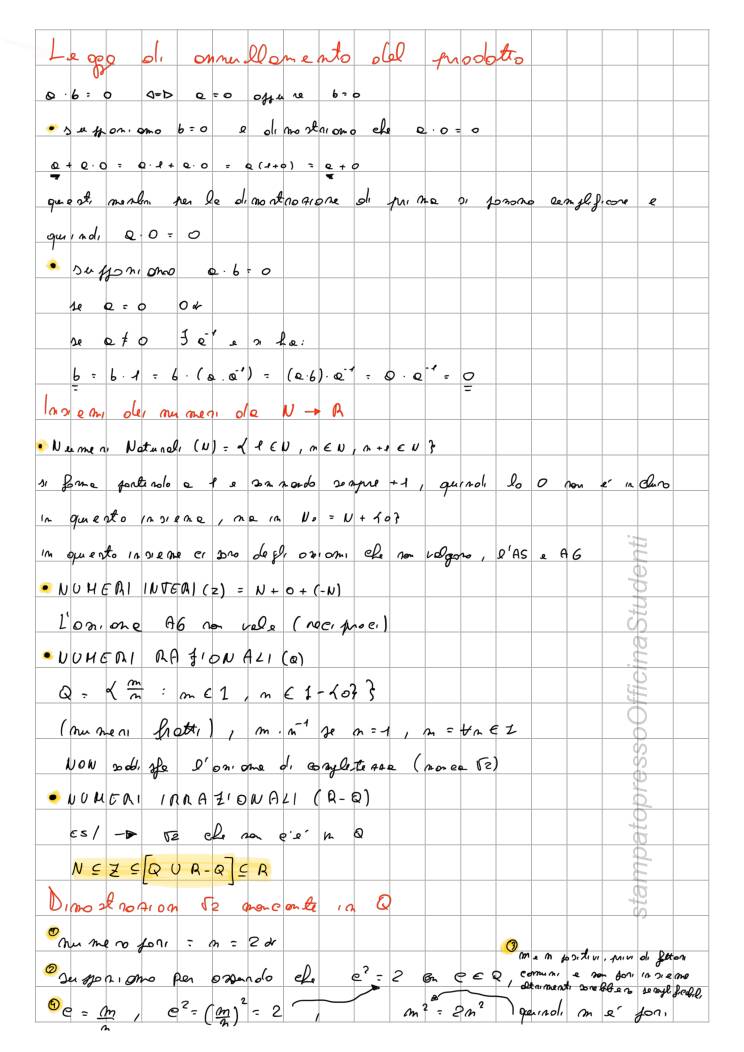 Legge di annullamento del prodotto
a · b = 0 ⇔ a = 0 oppure b = 0
• supponiamo b = 0 e dimostriamo che a · 0 = 0
a + a · 0 = a · 1 + a · 0 = a (1+0) = a + 0
questi membri per la dimostrazione di prima si possono semplificare e
quindi a · 0 = 0
• supponiamo a · b = 0
se a = 0 Ok
se a ≠ 0 ∃ a⁻¹ e si ha:
b = b · 1 = b · (a · a⁻¹) = (a·b) · a⁻¹ = 0 · a⁻¹ = 0
Insiemi dei numeri da N → R
• Numeri Naturali (N) = { 1 ∈ N, n ∈ N, n+1 ∈ N }
si forma partendo a 1 e sommando sempre +1, quindi lo 0 non é incluso
in questo insieme, ma in N₀ = N + {0}
in questo insieme ci sono degli assiomi che non valgono, l'A5 e A6
• NUMERI INTERI (Z) = N + 0 + (-N)
L'assione A6 non vale (reciproci)
• NUMERI RAZIONALI (Q)
Q = { m/n : m ∈ Z, n ∈ Z - {0} }
(numeri fratti), m · n⁻¹ se n = 1, m = ∀m ∈ Z
NON soddisfa l'assioma di completezza (manca √2)
• NUMERI IRRAZIONALI (R-Q)
ES/ → √2 che non c'é in Q
N ⊆ Z ⊆ [Q ∪ R-Q] ⊆ R
Dimostrazion √2 mancante in Q
① numero pari = n = 2k
② supponiamo per assurdo che e² = 2 con e ∈ Q,
③ m e n positivi, privi di fattori
comuni e non pari insieme
altrimenti sarebbero semplificabili
④ e = m/n, e² = (m/n)² = 2, m² = 2n² quindi m é pari
stampatopressoOfficinaStudenti